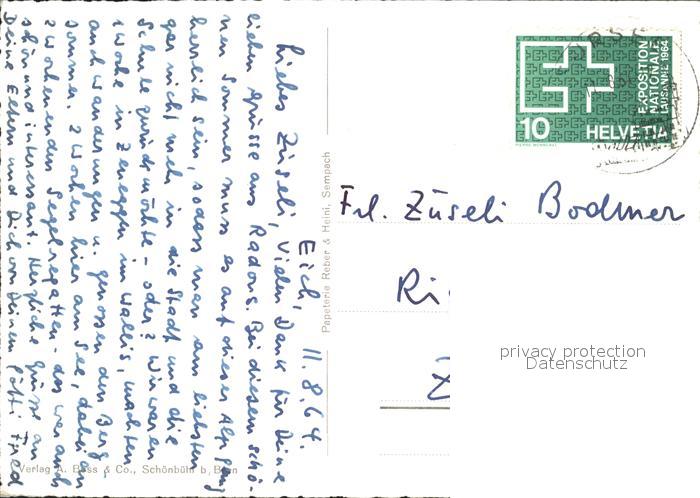 Eich, 11.8.64.
Liebes Züseli, Vielen Dank für Deine
lieben Grüsse aus Radons. Bei diesem schö-
nen Sommer muss es auf dieser Alp ganz
herrlich sein, sodass man am liebsten
gar nicht mehr in die Stadt und die
Schule zurück möchte - oder? Wir waren
1 Woche in Zeneggen im Wallis, machten
auch Wanderungen u. genossen den Berg-
sommer. 2 Wochen hier am See, dabei an
2 Wochenenden Segelregatten - das war auch
schön und interessant. Herzliche Grüsse an
Deine Eltern und Dich von Deinem Götti Fred
Papeterie Reber & Heini, Sempach
Verlag A. Boss & Co., Schönbühl b, Bern
EXPOSITION
NATIONALE
LAUSANNE 1964
10 HELVETIA
Frl. Züseli Bodmer
Ri
Z
privacy protection
Datenschutz